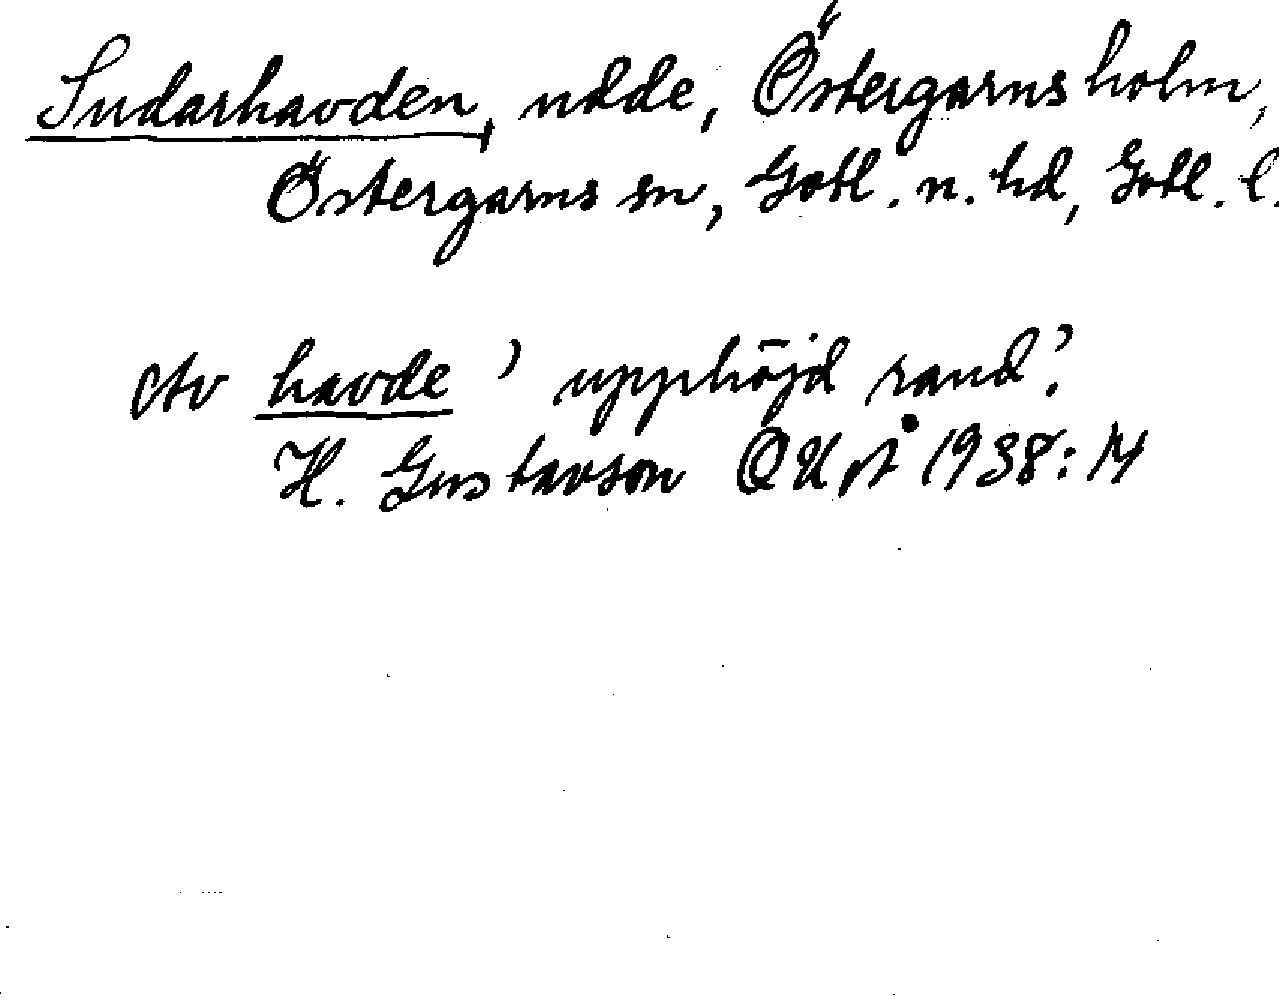 Sudarhavden, udde, Östergarnsholm,
Östergarns sn, Gotl. n. hd, Gotl. l.
Av havde 'upphöjd rand'.
H. Gustavson 1938: 14